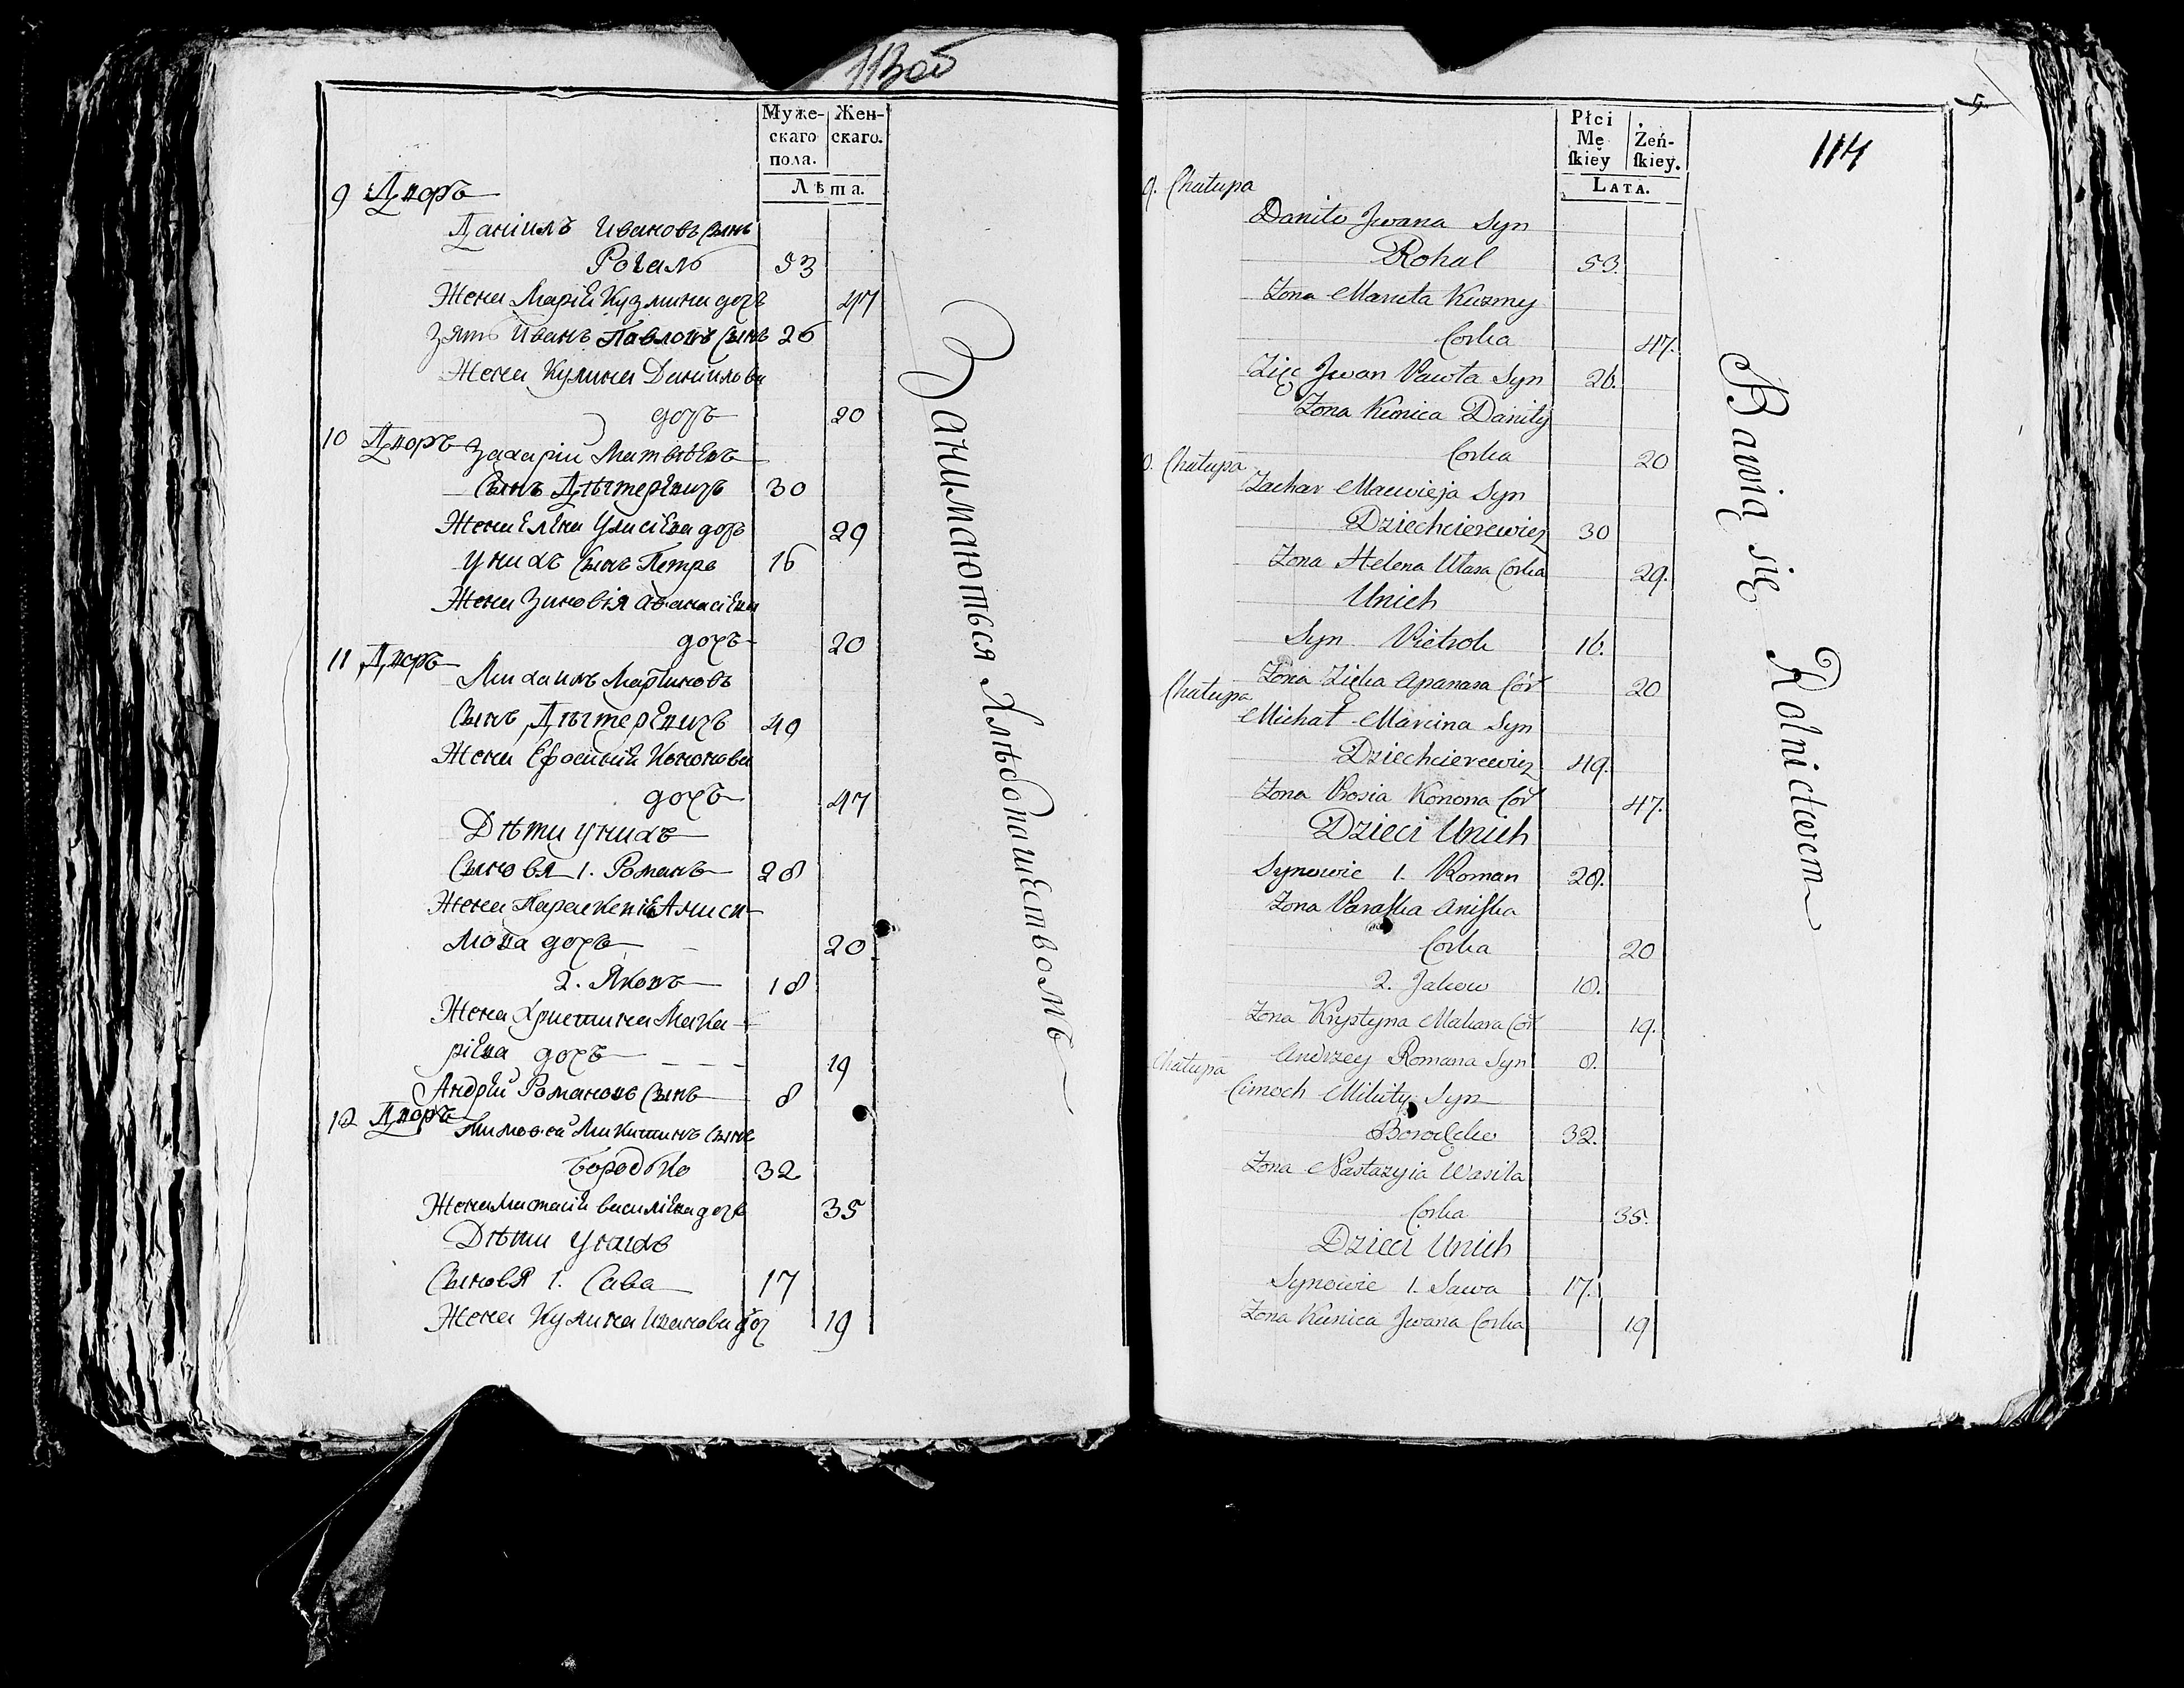 113об
Муже-
скаго
пола.
Жен-
скаго.
Лѣта.
9 Дворъ
Данiилъ Ивановъ Сынъ
Рогаль 53
Жена Марiя Кузмина дочъ 47
Зять Иванъ Павловъ Сынъ 26
Жена Кулина Данилова
дочъ 20
10 Дворъ
Захарiи Матвѣевъ
Сынъ Дѣхтеревичъ 30
Жена Елена Уласiева дочъ 29
У нихъ Сынъ Петръ 16
Жена Зиновiя Афанасiева
дочъ 20
11 Дворъ
Михаилъ Мартиновъ
Сынъ Дѣхтеревичъ 49
Жена Ефосинiя Кононова
дочъ 47
Дѣти у нихъ
Сыновя 1. Романъ 28
Жена Параскевiя Аниси-
мова дочъ 20
2. Яковъ 18
Жена Христина Мака-
рiева дочъ 19
Андрей Романовъ Сынъ 8
12 Дворъ
Тимофей Микитинъ Сынъ
Бородько 32
Жена Настасiя Василiева дочъ 35
Дѣти у нихъ
Сыновя 1. Сава 17
Жена Кулина Иванова доч 19
Занимаються Хлѣбопашествомъ
5
114
Płci
Mę
ſkiey
Żeń-
ſkiey.
LATA.
9. Chałupa
Daniło Jwana Syn
Rohal 53.
Żona Maruta Kuzmy
Corka 47.
Zięć Jwan Pawła Syn 26.
Żona Kunica Daniły
Corka 20
0. Chałupa
Zachar Macwieja Syn
Dziechcierewicz 30
Żona Helena Ułasa Corka 29.
Unich
Syn Pietrok 16.
Żona Zięka Apanasa Cór 20
Chałupa
Michał Marcina Syn
Dziechcierewicz 49.
Żona Prosia Konona Cór 47.
Dzieci Unich
Synowie 1. Roman 28.
Żona Paraſka Aniſka
Corka 20
2. Jakow 18.
Żona Krystyna Makara Cór 19.
Andrzey Romana Syn 8.
Chałupa
Cimoch Mikity Syn
Borodzko 32.
Żona Nastazyia Wasila
Corka 35.
Dzieci Unich
Synowie 1. Sawa 17.
Żona Kunica Jwana Corka 19
Bawią się Rolnictwem